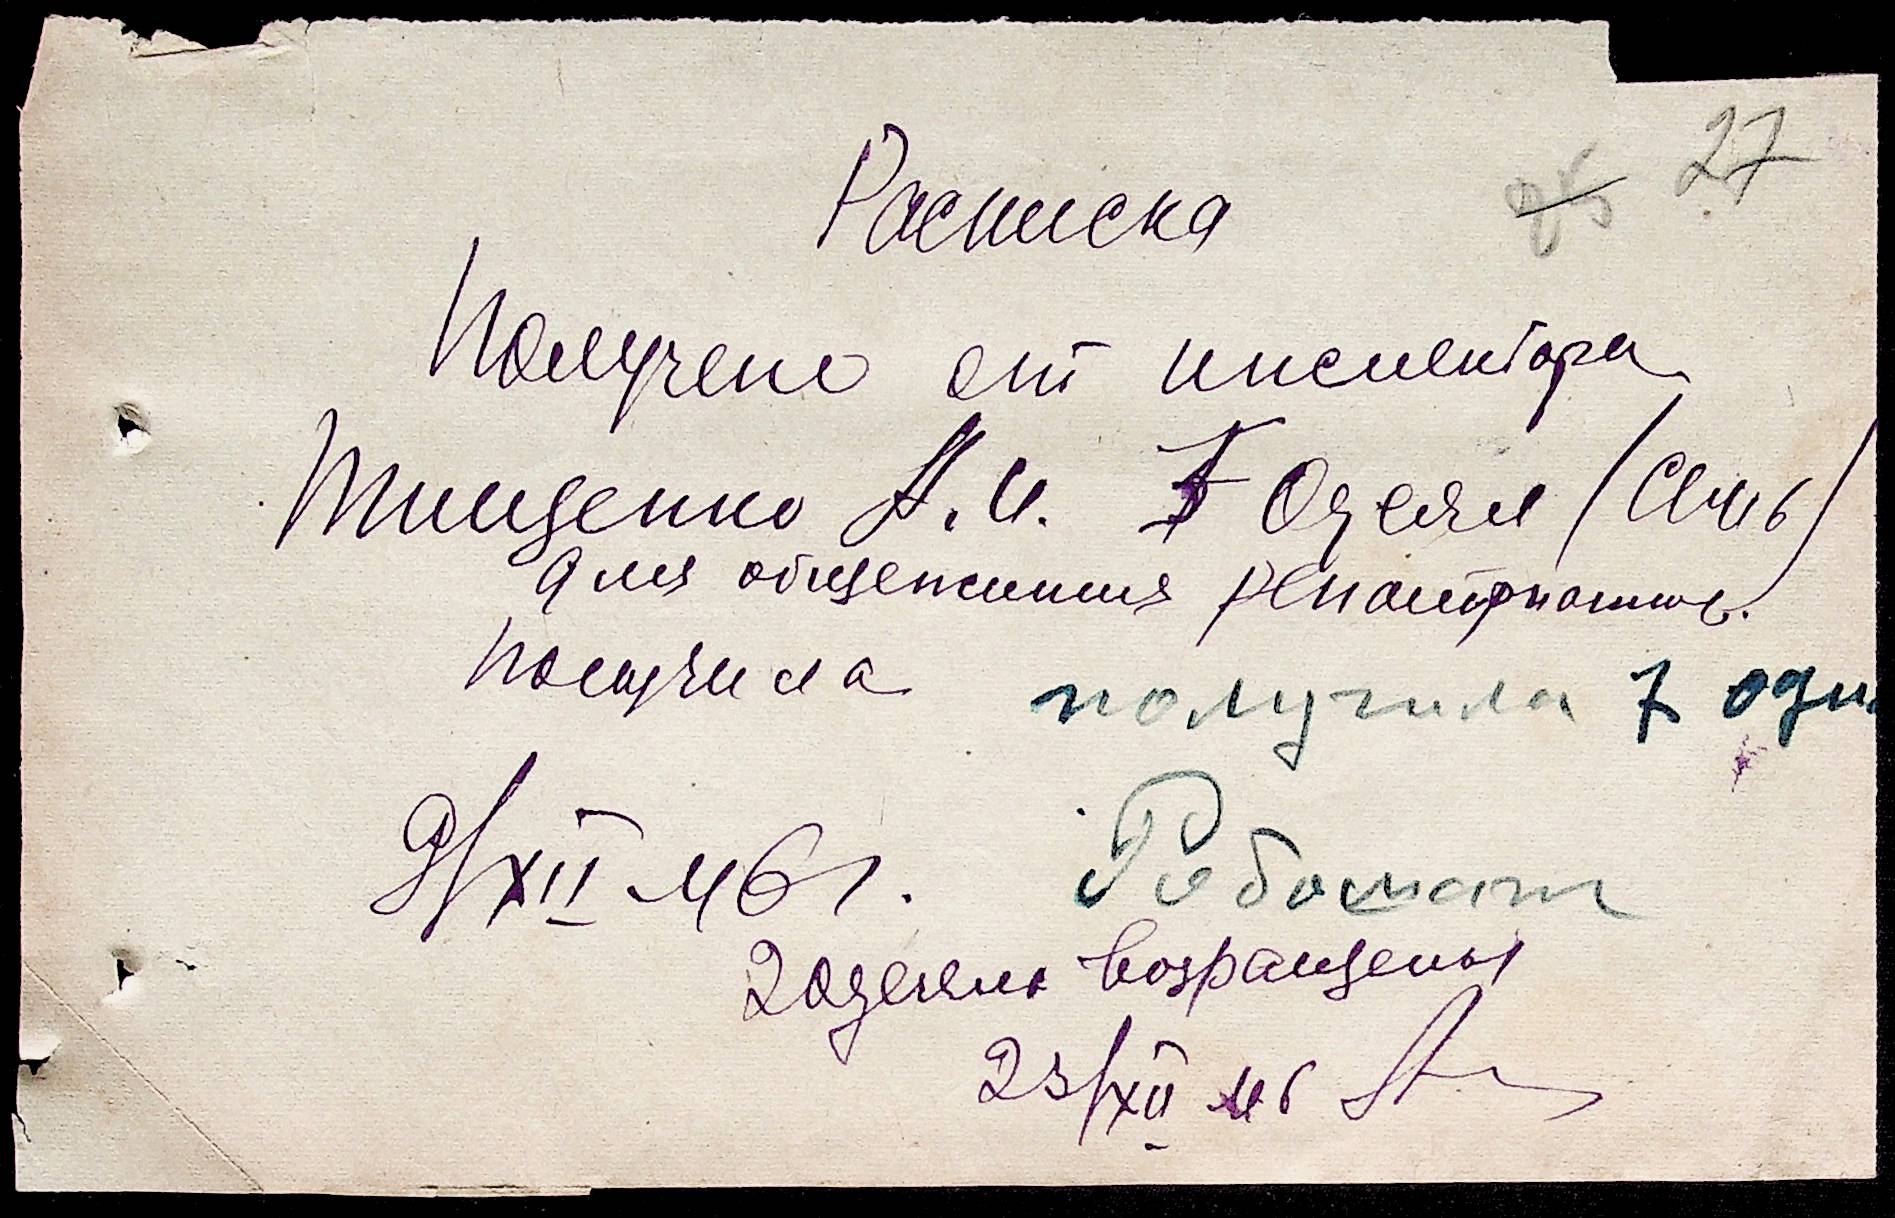 27
Расписка
Получено от инспектора
Тищенко А.И. 7 Одеял (Семь)
для общежития репатриантов.
Получила получила 7 одея
9/XII 46 г.
2 одеяла возращены
23/XII 46